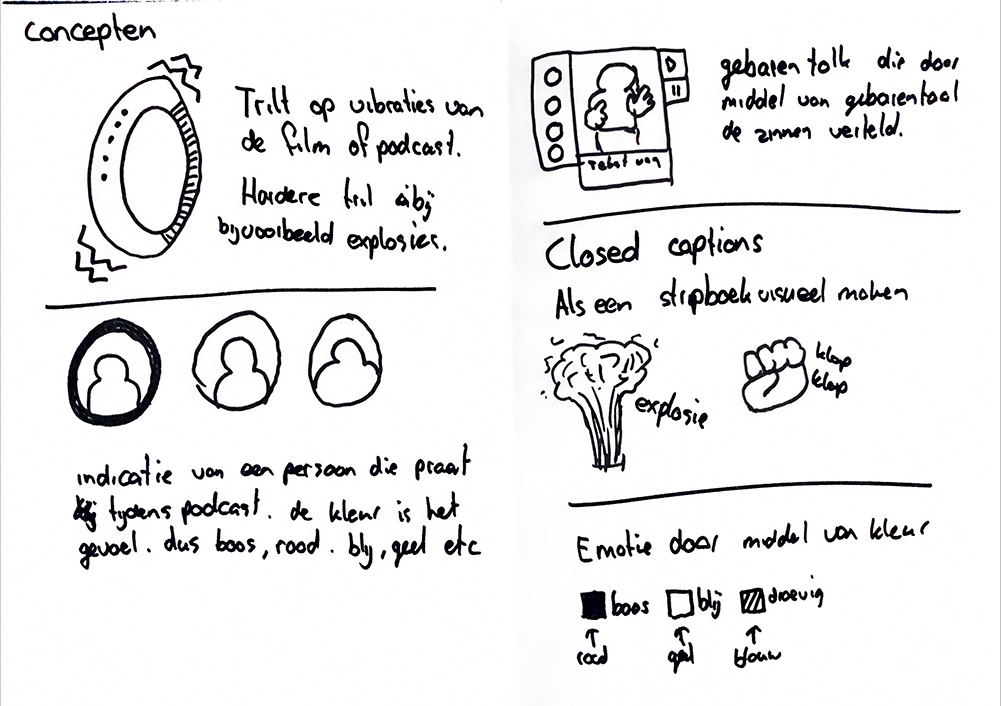 concepten
Trilt op vibraties van
de film of podcast.
Hardere tril bij
bijvoorbeeld explosies.
indicatie van een persoon die praat
tijdens podcast. de kleur is het
gevoel. dus boos, rood. blij, geel etc
gebaren tolk die door
middel van gebarentaal
de zinnen verteld.
Tekst van
Closed captions
Als een stripboek visueel maken
explosie
klop
klop
Emotie door middel van kleur
boos blij droevig
rood geel blauw